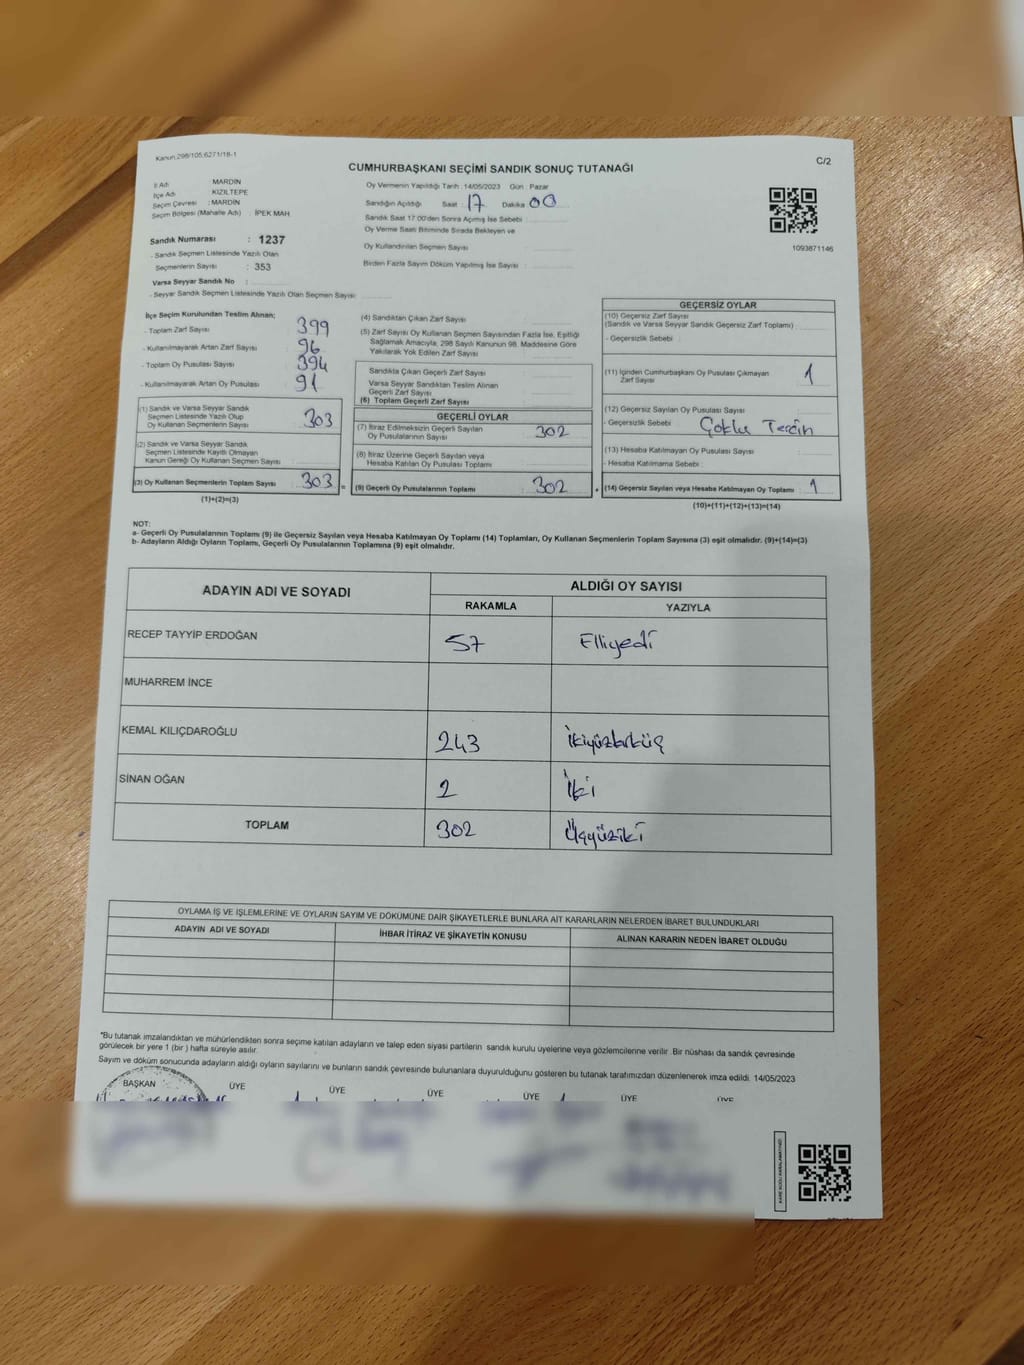 Kanun,298/105,6271/18-1
CUMHURBAŞKANI SEÇİMİ SANDIK SONUÇ TUTANAĞI
C/2
İl Adı MARDİN
İlçe Adı KIZILTEPE
Seçim Çevresi : MARDİN
Seçim Bölgesi (Mahalle Adı) İPEK MAH.
Sandık Numarası : 1237
- Sandık Seçmen Listesinde Yazılı Olan
Seçmenlerin Sayısı : 353
Varsa Seyyar Sandık No :
- Seyyar Sandık Seçmen Listesinde Yazılı Olan Seçmen Sayısı
Oy Vermenin Yapıldığı Tarih : 14/05/2023 Gün : Pazar
Sandığın Açıldığı Saat 17 Dakika 00
Sandık Saat 17:00'den Sonra Açımış İse Sebebi :
Oy Verme Saati Bitiminde Sırada Bekleyen ve
Oy Kullandırılan Seçmen Sayısı
Birden Fazla Sayım Döküm Yapılmış İse Sayısı :
1093871146
İlçe Seçim Kurulundan Teslim Alınan;
- Toplam Zarf Sayısı 399
- Kullanılmayarak Artan Zarf Sayısı 96
- Toplam Oy Pusulası Sayısı 394
- Kullanılmayarak Artan Oy Pusulası 91
(1) Sandık ve Varsa Seyyar Sandık
Seçmen Listesinde Yazılı Olup
Oy Kullanan Seçmenlerin Sayısı 303
(2) Sandık ve Varsa Seyyar Sandık
Seçmen Listesinde Kayıtlı Olmayan
Kanun Gereği Oy Kullanan Seçmen Sayısı
(3) Oy Kullanan Seçmenlerin Toplam Sayısı 303 =
(1)+(2)=(3)
(4) Sandıktan Çıkan Zarf Sayısı
(5) Zarf Sayısı Oy Kullanan Seçmen Sayısından Fazla İse, Eşitliği
Sağlamak Amacıyla, 298 Sayılı Kanunun 98. Maddesine Göre
Yakılarak Yok Edilen Zarf Sayısı
Sandıkta Çıkan Geçerli Zarf Sayısı
Varsa Seyyar Sandıktan Teslim Alınan
Geçerli Zarf Sayısı
(6) Toplam Geçerli Zarf Sayısı
GEÇERLİ OYLAR
(7) İtiraz Edilmeksizin Geçerli Sayılan
Oy Pusulalarının Sayısı : 302
(8) İtiraz Üzerine Geçerli Sayılan veya
Hesaba Katılan Oy Pusulası Toplamı
(9) Geçerli Oy Pusulalarının Toplamı : 302
GEÇERSİZ OYLAR
(10) Geçersiz Zarf Sayısı
(Sandık ve Varsa Seyyar Sandık Geçersiz Zarf Toplamı)
- Geçersizlik Sebebi :
(11) İçinden Cumhurbaşkanı Oy Pusulası Çıkmayan
Zarf Sayısı 1
(12) Geçersiz Sayılan Oy Pusulası Sayısı
- Geçersizlik Sebebi : Çoklu Tercin
(13) Hesaba Katılmayan Oy Pusulası Sayısı
- Hesaba Katılmama Sebebi :
(14) Geçersiz Sayılan veya Hesaba Katılmayan Oy Toplamı 1
(10)+(11)+(12)+(13)=(14)
NOT:
a- Geçerli Oy Pusulalarının Toplamı (9) ile Geçersiz Sayılan veya Hesaba Katılmayan Oy Toplamı (14) Toplamları, Oy Kullanan Seçmenlerin Toplam Sayısına (3) eşit olmalıdır. (9)+(14)=(3)
b- Adayların Aldığı Oyların Toplamı, Geçerli Oy Pusulalarının Toplamına (9) eşit olmalıdır.
ADAYIN ADI VE SOYADI ALDIĞI OY SAYISI
RAKAMLA YAZIYLA
RECEP TAYYİP ERDOĞAN 57 Elliyedi
MUHARREM İNCE
KEMAL KILIÇDAROĞLU 243 İkiyüzkırküç
SİNAN OĞAN 2 İki
TOPLAM 302 Üçyüziki
OYLAMA İŞ VE İŞLEMLERİNE VE OYLARIN SAYIM VE DÖKÜMÜNE DAİR ŞİKAYETLERLE BUNLARA AİT KARARLARIN NELERDEN İBARET BULUNDUKLARI
ADAYIN ADI VE SOYADI İHBAR İTİRAZ VE ŞİKAYETİN KONUSU ALINAN KARARIN NEDEN İBARET OLDUĞU
*Bu tutanak imzalandıktan ve mühürlendikten sonra seçime katılan adayların ve talep eden siyasi partilerin sandık kurulu üyelerine veya gözlemcilerine verilir. Bir nüshası da sandık çevresinde
görülecek bir yere 1 (bir ) hafta süreyle asılır.
Sayım ve döküm sonucunda adayların aldığı oyların sayılarını ve bunların sandık çevresinde bulunanlara duyurulduğunu gösteren bu tutanak tarafımızdan düzenlenerek imza edildi. 14/05/2023
BAŞKAN ÜYE ÜYE ÜYE ÜYE ÜYE ÜYE